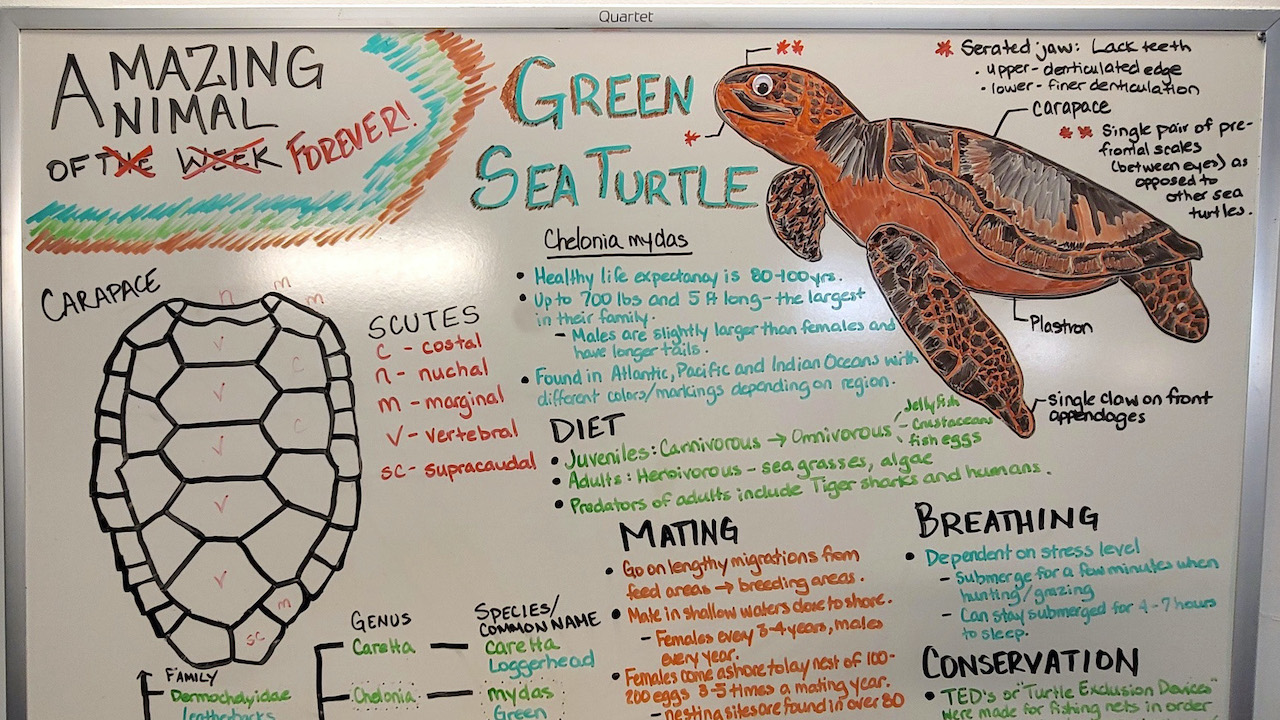 Quartet
AMAZING
ANIMAL
OF THE WEEK FOREVER!
GREEN
SEA TURTLE
Chelonia mydas
• Healthy life expectancy is 80-100yrs.
• Up to 700 lbs and 5 ft long - the largest
in their family.
- Males are slightly larger than females and
have longer tails.
• Found in Atlantic, Pacific and Indian Oceans with
different colors/markings depending on region.
**
*
* Serated jaw: Lack teeth
• upper - denticulated edge
• lower - finer denticulation
carapace
** Single pair of pre-
frontal scales
(between eyes) as
opposed to
other sea
turtles.
Plastron
single claw on front
appendages
CARAPACE
n
m
m
v
c
v
c
v
v
v
m
sc
SCUTES
c - costal
n - nuchal
m - marginal
v - vertebral
sc - supracaudal
DIET
• Juveniles: Carnivorous → Omnivorous
- Jellyfish
- Crustaceans
- fish eggs
• Adults: Herbivorous - sea grasses, algae
• Predators of adults include Tiger sharks and humans.
MATING
• Go on lengthy migrations from
feed areas → breeding areas.
• Male in shallow waters close to shore.
- Females every 3-4 years, males
every year.
• Females come ashore to lay nest of 100-
200 eggs 3-5 times a mating year.
- nesting sites are found in over 80
BREATHING
• Dependent on stress level
- Submerge for a few minutes when
hunting/grazing
- Can stay submerged for 4-7 hours
to sleep.
CONSERVATION
• TED's or "Turtle Exclusion Devices"
were made for fishing nets in order
FAMILY
Dermochelyidae
leatherbacks
GENUS
Caretta
Chelonia
SPECIES/
COMMON NAME
caretta
Loggerhead
mydas
Green